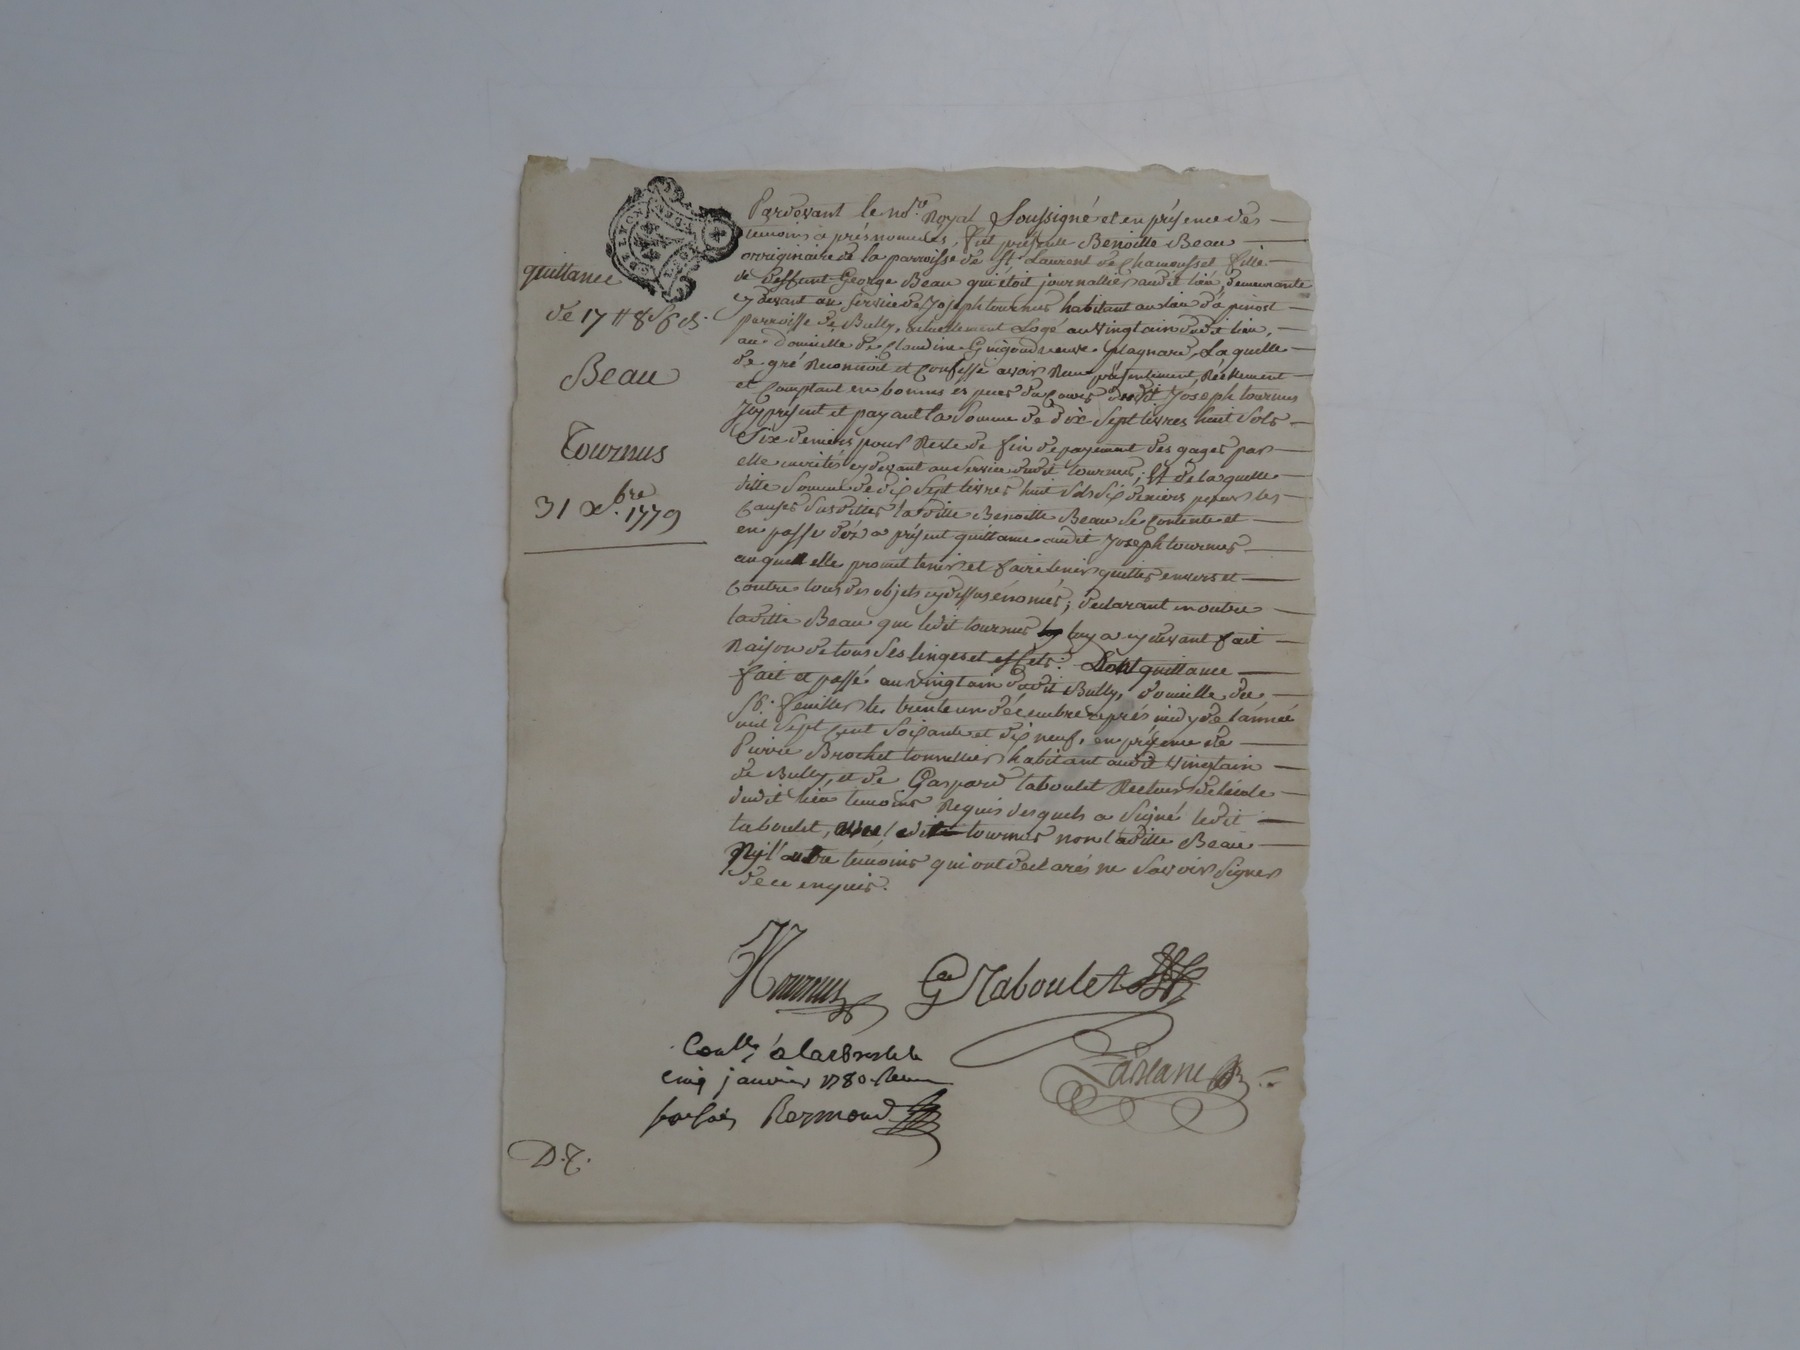 GEN. DE LYON
quittance
de 17 ₶ 8 s 6 d.
Beau
Tournus
31 Xbre. 1779
Pardevant le no.re Royal Soussigné et en présence des
temoins après nommés, fut presente Benoitte Beau
originaire de la parroisse de St. Laurent de Chamousset fille
de deffunt George Beau qui étoit journallier audit lieu, demeurante
cy devant au service de Joseph tournus habitant au lieu d'apinost
parroisse de Bully, actuellement Logé au vingtain dudit lieu,
au domicille de Claudine Guigoud veuve plagnard, Laquelle
de gré Reconnoit et Confesse avoir Reçu présentement, Réellement
et Comptant en bonnes especes de Cours dudit Joseph tournus
Icy présent et payant la Somme de dix Sept livres huit Sols
Six deniers pour Reste de fin de payement des gages par
elle merités cy devant au Service dudit tournus; Et de laquelle
ditte Somme de dix Sept livres huit Sols Six deniers pour les
Causes Susdittes laditte Benoitte Beau Se Contente et
en passe dez a présent quittance audit Joseph tournus
auquel elle promet tenir et faire tenir quittes envers et
Contre tous des objets cy dessus énomés; declarant en outre
laditte Beau que ledit tournus luy a cy devant fait
Raison de tous Ses linges et effets. Dont quittance
fait et passé au vingtain dudit Bully, domicille de
Sr. feuillet le trente un décembre après midy de l'année
mil Sept Cent Soixante et dix neuf, en présence de
Pierre Brochet tonnellier habitant audit Vingtain
de Bully, et de Gaspard taboulet Recteur d'école
dudit lieu temoins Requis desquels a Signé ledit
taboulet, avec ledit tournus non laditte Beau
Ny l'autre temoins qui ont declarés ne Savoir Signer
de ce enquis.
Tournus
G Taboulet
Coll. à larbresle le
cinq janvier 1780 Reçu
Bermond
D. T.